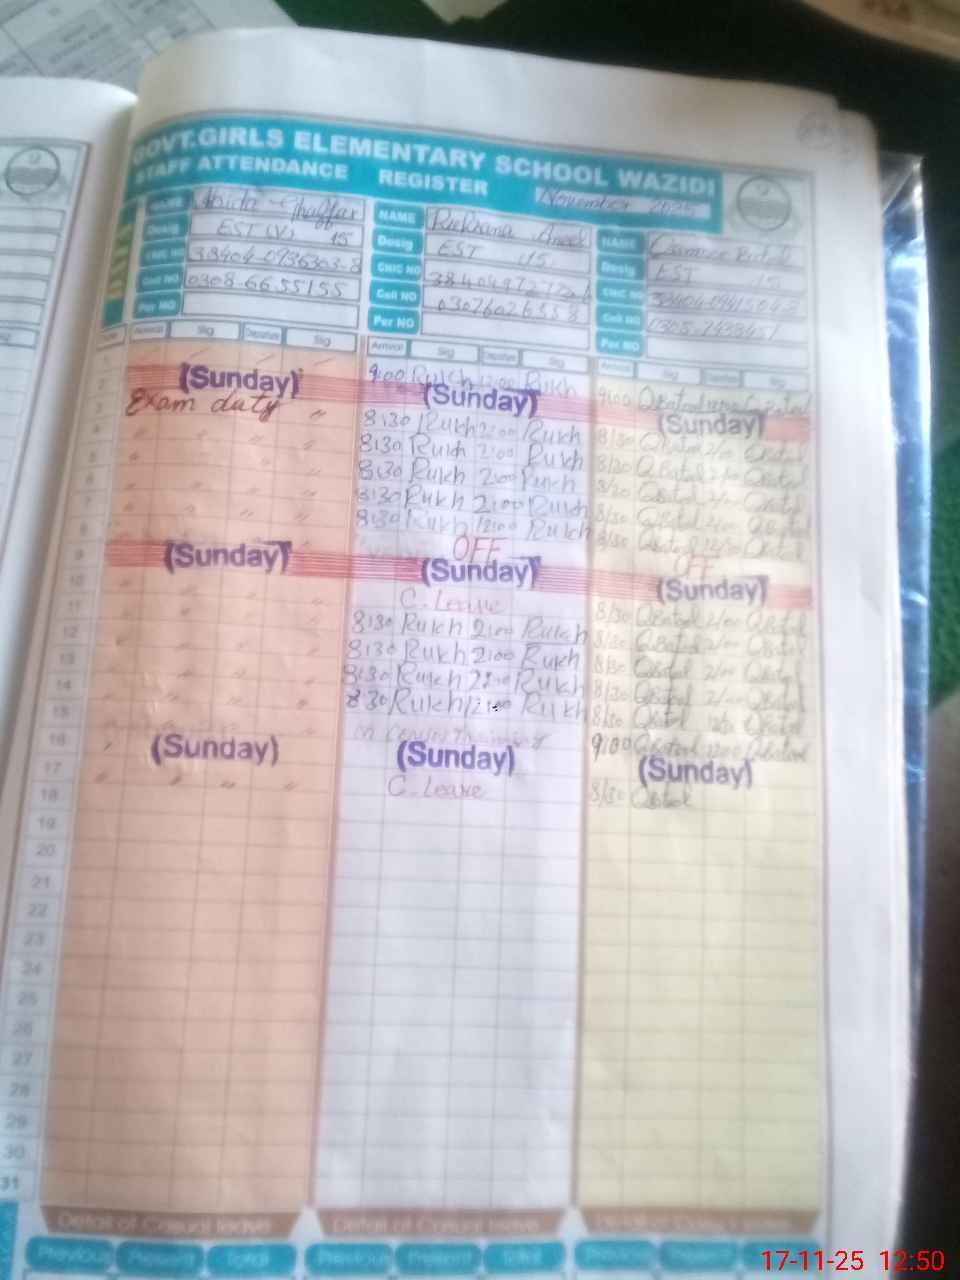 GOVT.GIRLS ELEMENTARY SCHOOL WAZIDI
STAFF ATTENDANCE REGISTER November 2025
NAME Ghaffar NAME Rukhsana NAME Batool
Desig EST (V) 15 Desig EST 15 Desig EST 15
CNIC NO CNIC NO CNIC NO
Cell NO 0308-6655155 Cell NO 03076026558 Cell NO
Per NO Per NO Per NO
Arrival Sig Departure Sig Arrival Sig Departure Sig Arrival Sig Departure Sig
9:00 Rukh 12:00 Rukh 9:00 QBatool 12:00 QBatool
2 (Sunday) (Sunday) (Sunday)
3 Exam duty " 8:30 Rukh 2:00 Rukh 8/30 QBatol 2/00 QBatol
4 " " " 8:30 Rukh 2:00 Rukh 8/30 QBatol 2/00 QBatol
5 " " " 8:30 Rukh 2:00 Rukh 8/30 QBatol 2/00 QBatol
6 " " " 8:30 Rukh 2:00 Rukh 8/30 QBatol 2/00 QBatol
7 " " " 8:30 Rukh 12:00 Rukh 8/30 QBatol 12/00 QBatol
8 OFF OFF
9 (Sunday) (Sunday) (Sunday)
10 " " " C.Leave 8/30 QBatol 2/00 QBatol
11 " " " 8:30 Rukh 2:00 Rukh 8/30 QBatol 2/00 QBatol
12 " " " 8:30 Rukh 2:00 Rukh 8/30 QBatol 2/00 QBatol
13 " " " 8:30 Rukh 2:00 Rukh 8/30 QBatol 2/00 QBatol
14 " " " 8:30 Rukh 12:00 Rukh 8/30 QBatol 12/00 QBatol
15 Training 9:00 QBatool 12:00 QBatool
16 (Sunday) (Sunday) (Sunday)
17 " " " " C.Leave 8/30 QBatol
18
19
20
21
22
23
24
25
26
27
28
29
30
31
Detail of Casual leave Detail of Casual leave Detail of Casual leave
Previous Present Total Previous Present Total Previous Present Total
17-11-25 12:50